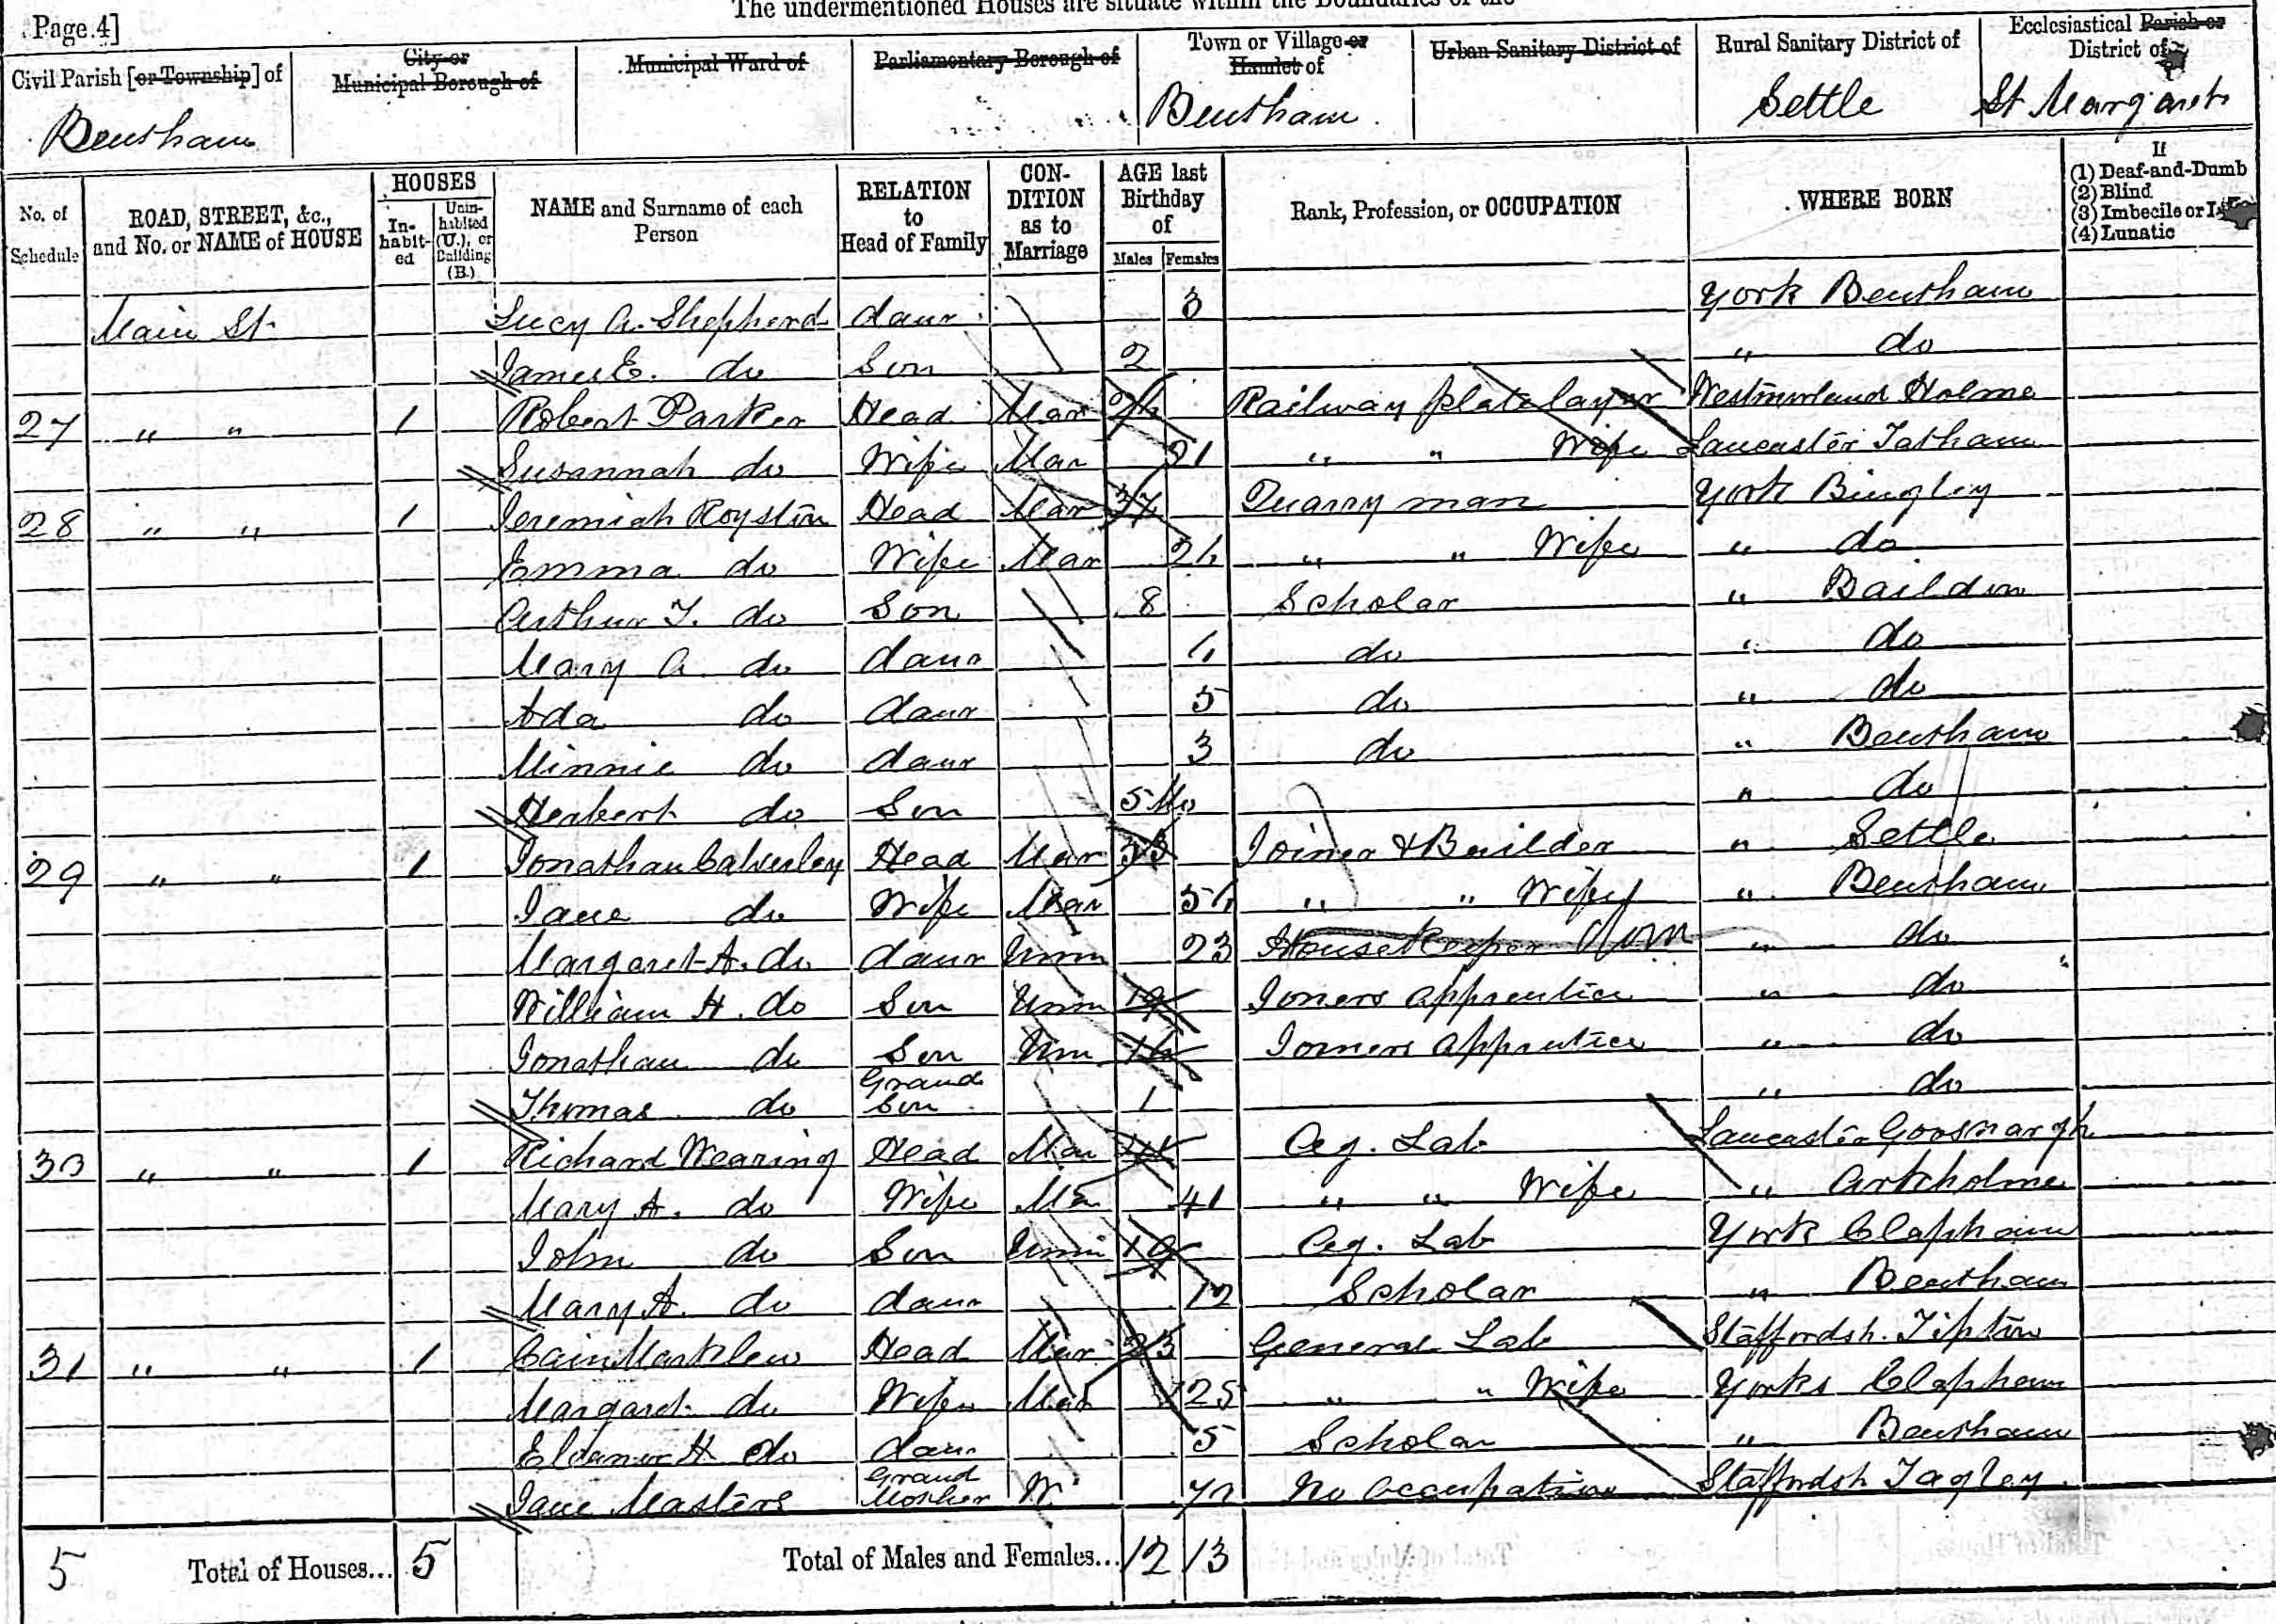 The undermentioned Houses are situate within the Boundaries of the
Page 4]
Civil Parish [or Township] of
City or Municipal Borough of
Municipal Ward of
Parliamentary Borough of
Town or Village or Hamlet of
Urban Sanitary District of
Rural Sanitary District of
Ecclesiastical Parish or District of
Bentham Bentham Settle St Margarets
No. of Schedule
ROAD, STREET, &c., and No. or NAME of HOUSE
HOUSES
In-habit-ed
Unin-habited (U.), or Building (B.)
NAME and Surname of each Person
RELATION to Head of Family
CON-DITION as to Marriage
AGE last Birthday of
Males Females
Rank, Profession, or OCCUPATION
WHERE BORN
If
(1) Deaf-and-Dumb
(2) Blind
(3) Imbecile or
(4) Lunatic
Main St. Lucy A. Shepherd daur 3 York Bentham
James E. do Son 2 " do
27 " " 1 Robert Parker Head Mar Railway platelayer Westmorland Holme
Susannah do Wife Mar 21 " " Wife Lancaster Tatham
28 " " 1 Jeremiah Royston Head Mar 37 Quarry man York Bingley
Emma do Wife Mar " " Wife " do
Arthur T. do Son 8 Scholar " Baildon
Mary A. do daur do " do
Ada do daur 5 do " do
Minnie do daur 3 do " Bentham
Herbert do Son 5 Mo " do
29 " " 1 Jonathan Calverley Head Mar Joiner & Builder " Settle
Jane do Wife Mar " " Wife " Bentham
Margaret A. do daur Unm 23 Housekeeper Dom " do
William H. do Son Unm 19 Joners apprentice " do
Jonathan do Son Unm Joiners apprentice " do
Thomas do Grand Son 1 " do
30 " " 1 Richard Wearing Head Mar Ag. Lab Lancaster Goosnargh
Mary A. do Wife Mar 41 " " Wife " Arkholme
John do Son Unm 19 Ag. Lab York Clapham
Mary A. do daur 12 Scholar " Bentham
31 " " 1 Cain Marklew Head Mar 23 General Lab Staffordsh. Tipton
Margaret do Wife Mar 25 " " Wife Yorks Clapham
Eleanor H do daur 5 Scholar " Bentham
Jane Masters Grand Mother W No Occupation Staffordsh
5 Total of Houses... 5 Total of Males and Females... 12 13